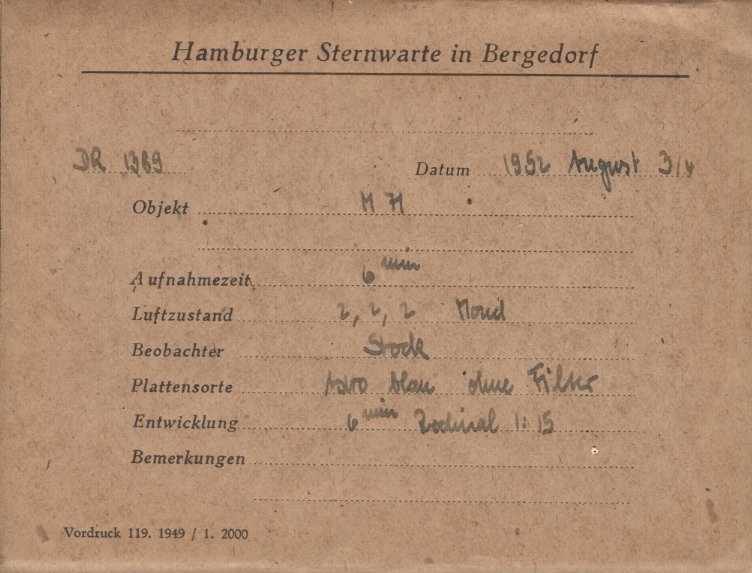 Hamburger Sternwarte in Bergedorf
DR 1369 Datum 1952 August 3/4
Objekt M 71
Aufnahmezeit 6 min
Luftzustand 2, 2, 2 Mond
Beobachter Stock
Plattensorte blau ohne Filter
Entwicklung 6 min Rodinal 1:15
Bemerkungen
Vordruck 119. 1949 / 1. 2000